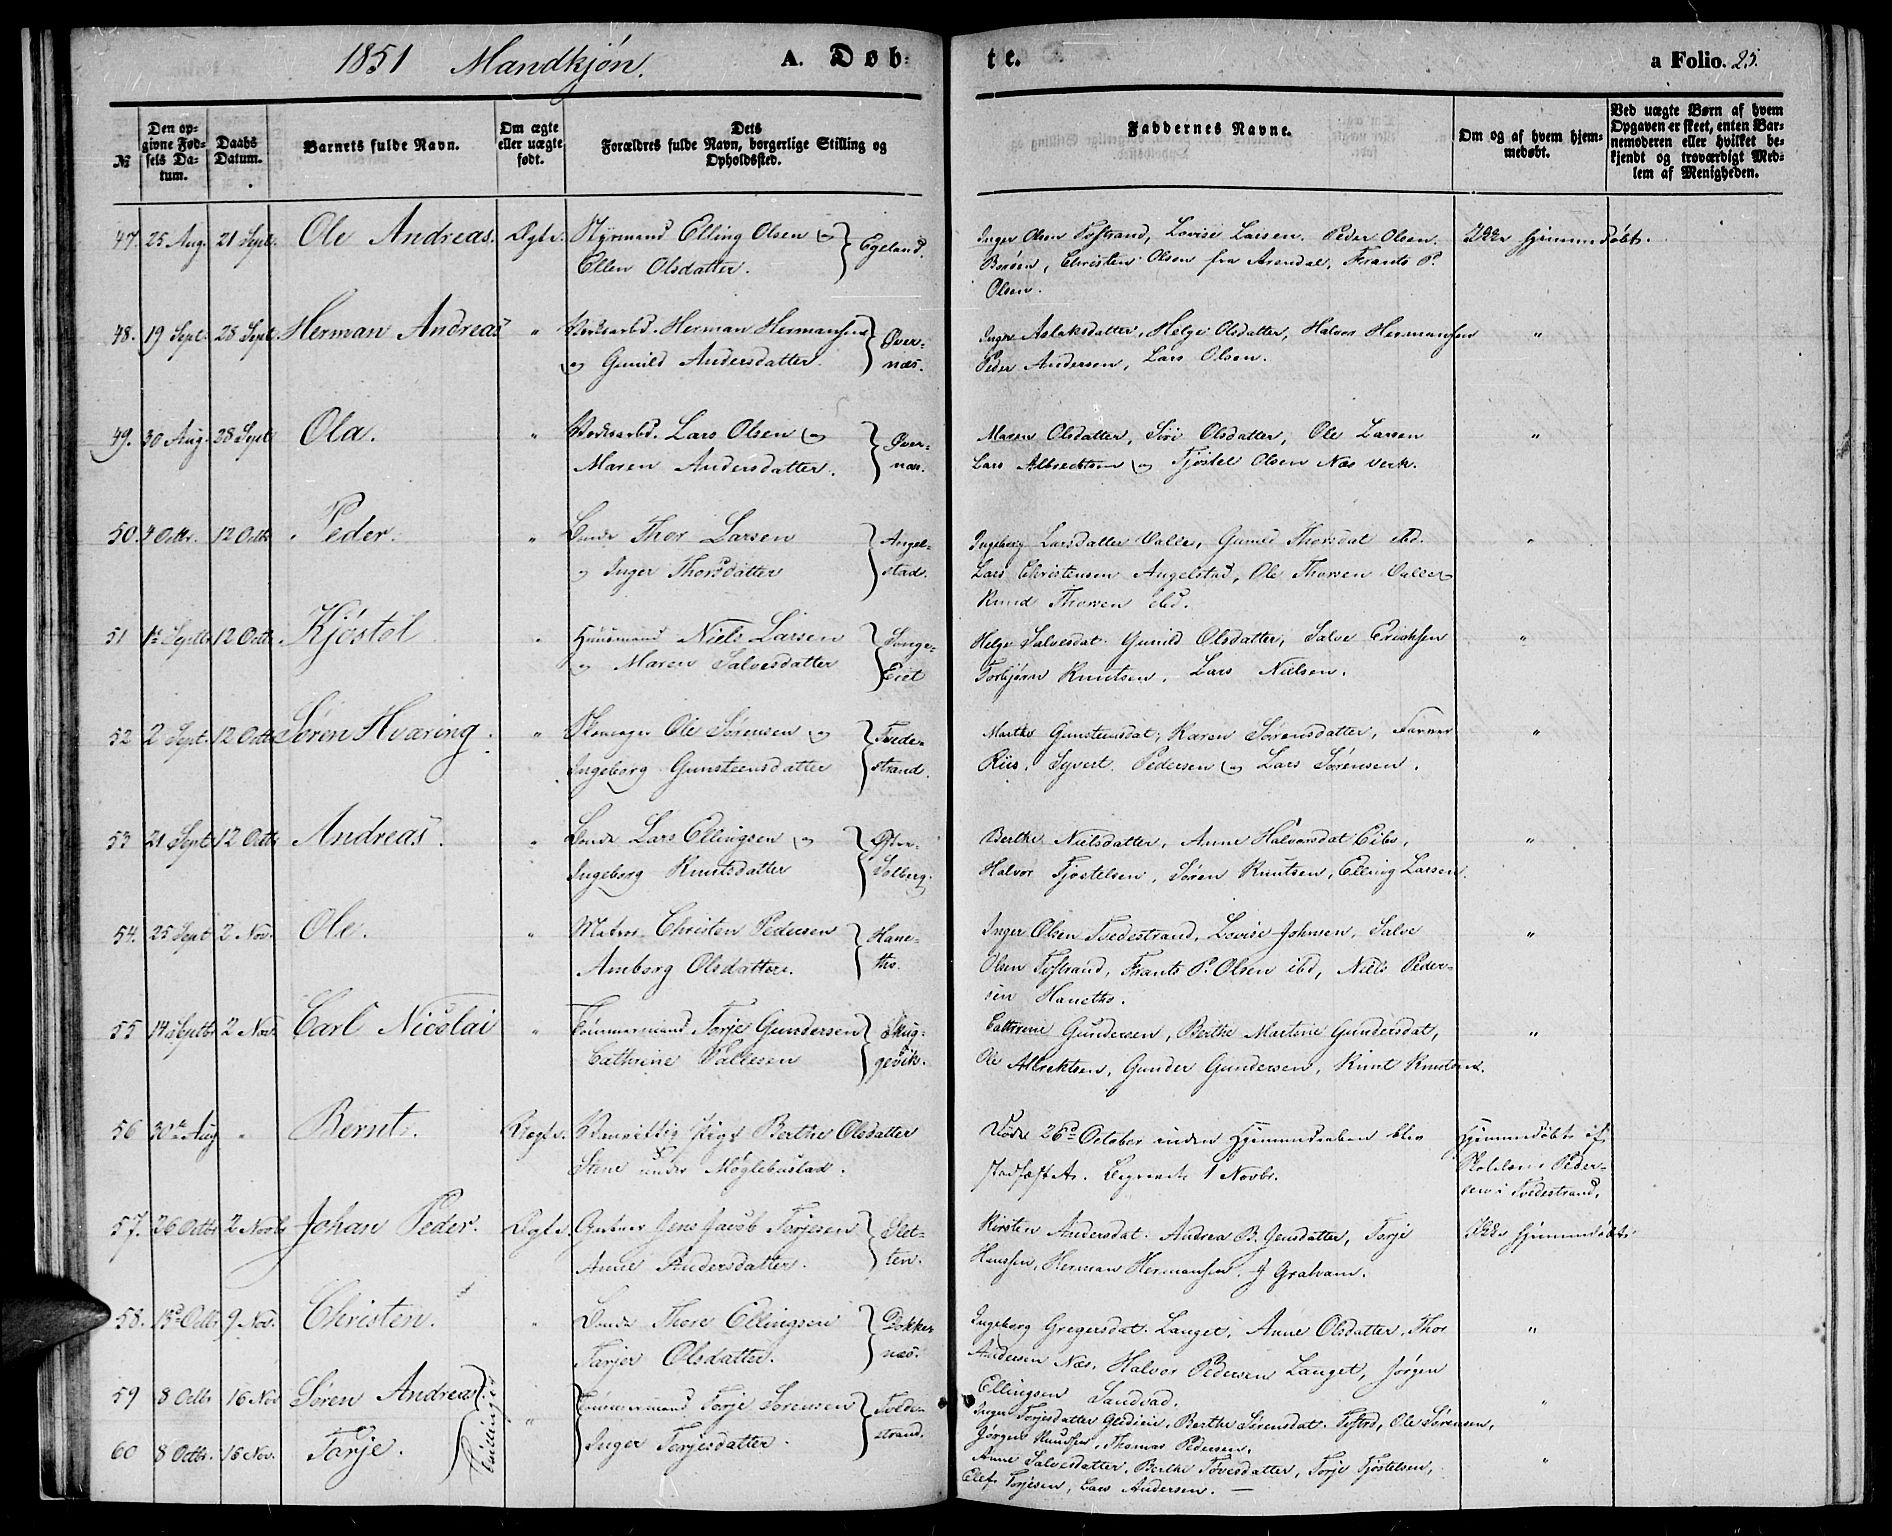 1851 Mandkjøn.
A. Døb-
te.
a Folio. 25.
№
Den op-
givne Fød-
sels Da-
tum.
Daabs
Datum.
Barnets fulde Navn.
Om ægte
eller uægte
født.
Dets
Forældres fulde Navn, borgerlige Stilling og
Opholdssted.
Faddernes Navne.
Om og af hvem hjem-
medøbt.
Ved uægte Børn af hvem
Opgaven er skeet, enten Bar-
nemoderen eller hvilket be-
kjendt og troværdigt Med-
lem af Menigheden.
47. 25 Aug. 21 Sept. Ole Andreas. Ægte. Styrmand Elling Olsen og Egeland.
Ellen Olsdatter.
Inger Olsen Tvstrand, Lovise Larsen. Peder Olsen
Borøen, Christen Olsen fra Arendal, Frants P.
Olsen.
Ikke hjemmedøbt.
48. 19 Sept. 28 Sept. Herman Andreas " Verksarbd. Herman Hermansen Øver-
og Gunild Andersdatter. næs.
Inger Aslaksdatter, Helge Olsdatter, Halvor Hermansen "
Peder Andersen, Lars Olsen.
49. 30 Aug. 28 Sept Ola. " Verksarbd. Lars Olsen og Øver-
Maren Andersdatter. næs.
Maren Olsdatter, Siri Olsdatter, Ole Larsen "
Lars Albrechtsen og Tjøstel Olsen Næs Verk.
50. 4 Octbr. 12 Octb Peder. " Bonde Thor Larsen Angel-
og Inger Thorsdatter stad.
Ingeborg Larsdatter Valle, Gunild Thorsdat ibd. "
Lars Christensen Angelstad, Ole Thorsen Valle
Knud Thorsen ibd.
51 1 Septbr 12 Octb Kjøstol " Huusmand Niels Larsen Songe-
og Maren Salvesdatter Eiet
Helge Salvesdat. Gunild Olsdatter, Salve Erichsen "
Torbjørn Knutsen, Lars Nielsen.
52 2 Sept. 12 Octb Søren Hværing. " Skomager Ole Sørensen og Tvede-
Ingeborg Gunsteensdatter strand.
Marthe Gunsteensdat, Karen Sørensdatter, "
Riis, Syvert Pedersen og Lars Sørensen.
53 21 Sept 12 Octb Andreas. " Bonde Lars Ellingsen og Øster-
Ingeborg Knutsdatter Solberg.
Berthe Nielsdatter, Anne Halvorsdat Eibo, "
Halvor Tjøstelsen, Søren Knutsen, Elling Larsen.
54. 25 Sept 2 Nov. Ole. " Matros Christen Pedersen Hane-
Amborg Olsdatter. tho.
Inger Olsen Tvedestrand, Lovise Johnsen, Salve "
Olsen Tvstrand, Frants P. Olsen ibd, Niels Peder-
sen Hanetho.
55 14 Septbr 2 Nov. Carl Nicolai " Tømmermand Torje Gundersen Skug-
Cathrine Pallesen gevik.
Cathrine Gundersen, Berthe Martine Gundersdat, "
Ole Albrektsen, Gunder Gundersen, Knut Knutsen.
56 30te Aug " Bernt. Uægte. Vanvittig Pige Berthe Olsdatter
Stene under Møglebustad.
Døde 26d October inden Hjemmedaaben blev
stadfæstet. Begravet 1 Novbr.
Hjemmedøbt af
Skolelærer Peder-
sen i Tvedestrand.
57. 26 Octbr 2 Novbr Johan Peder. Ægte. Gartner Jens Jacob Torjesen Slet-
Anne Andersdatter. ten.
Kirsten Andersdat. Andrea B. Jensdatter, Torje
Hansen, Herman Hermansen. J Graham.
Ikke hjemmedøbt
58. 13d Octbr 9 Nov. Christen. " Bonde Thore Ellingsen Dokke-
Tarjer Olsdatter. næs.
Ingeborg Gregersdat. Langet, Anne Olsdatter, Thor "
Andersen Næs, Halvor Pedersen Langet, Jørgen
Ellingsen Sandvad.
59 8 Octb 16 Nov Søren Andreas. " Tømmermand Torje Sørensen Tvede-
Inger Torjesdatter. strand.
Tvillinger
Inger Torjesdatter Berthe Sørensdat. Tvstrd, Ole Sørensen, "
Jørgen Knudsen, Thomas Pedersen.
60 8 Octbr. 16 Nov. Tarje.
Anne Salvesdatter, Berthe Tovesdatter, Torje Tjøstelsen, "
Elef Torjesen, Lars Andersen.